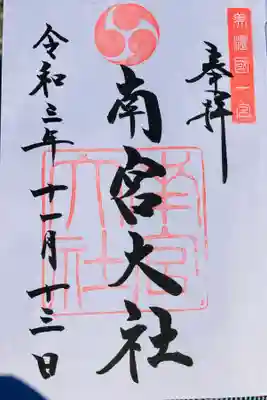 美濃国一宮
奉拝
南宮大社
南宮大社
令和三年十一月十三日